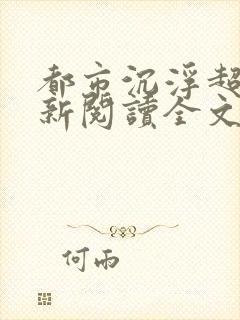 都市沉浮超
新閱讀全文
何雨